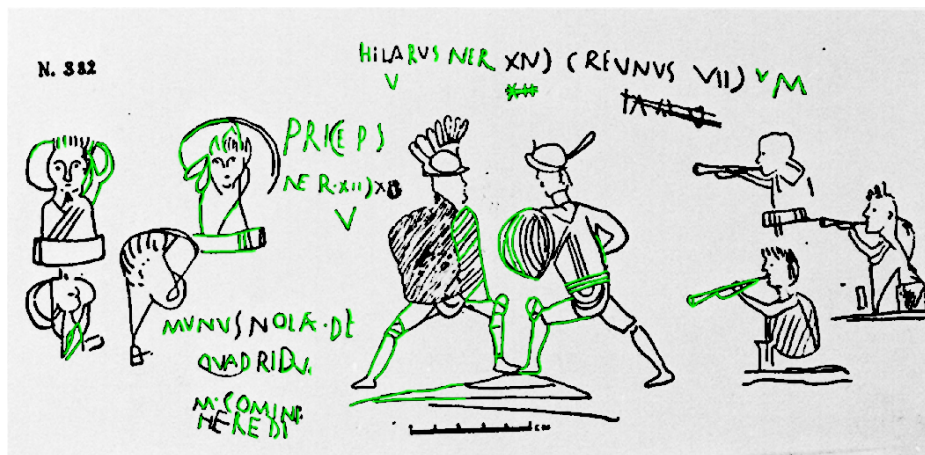 N. 382
HILARUS NER XIV) (REVNUS VII) V M
V
PRICEPS
NER·XII)X
V
MVNUS NOLÆ·DE
QUADRIDV.
M·COMINI·
HEREDI
CM